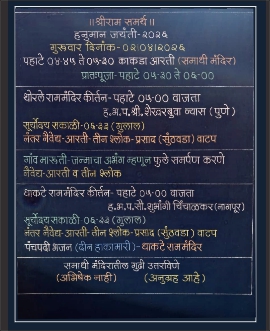 ॥श्रीराम समर्थ॥
हनुमान जयंती-२०२६
गुरुवार दिनांक-०२।०४।२०२६
पहाटे ०४-४५ ते ०५-३० काकडा आरती (समाधी मंदिर)
प्रातःपूजा- पहाटे ०५-३० ते ०६-००
थोरले राममंदिर कीर्तन- पहाटे ०५-०० वाजता
ह.भ.प.श्री.शेखरबुवा व्यास (पुणे)
सूर्योदय सकाळी-०६-२३ (गुलाल)
नंतर नैवेद्य-आरती-तीन श्लोक-प्रसाद (सुंठवडा) वाटप
गांव मारुती-जन्माचा अभंग म्हणून फुले समर्पण करणे
नैवेद्य-आरती व तीन श्लोक
धाकटे राममंदिर कीर्तन- पहाटे ०५-०० वाजता
ह.भ.प.सौ.शुभांगी चिंचाळकर (नागपूर)
सूर्योदय सकाळी-०६-२३ (गुलाल)
नंतर नैवेद्य-आरती-तीन श्लोक-प्रसाद (सुंठवडा) वाटप
पंचपदी भजन (दीन हाका मारी)-धाकटे राममंदिर
समाधी मंदिरातील गुढी उतरविणे
(अभिषेक नाही) (अनुग्रह आहे)